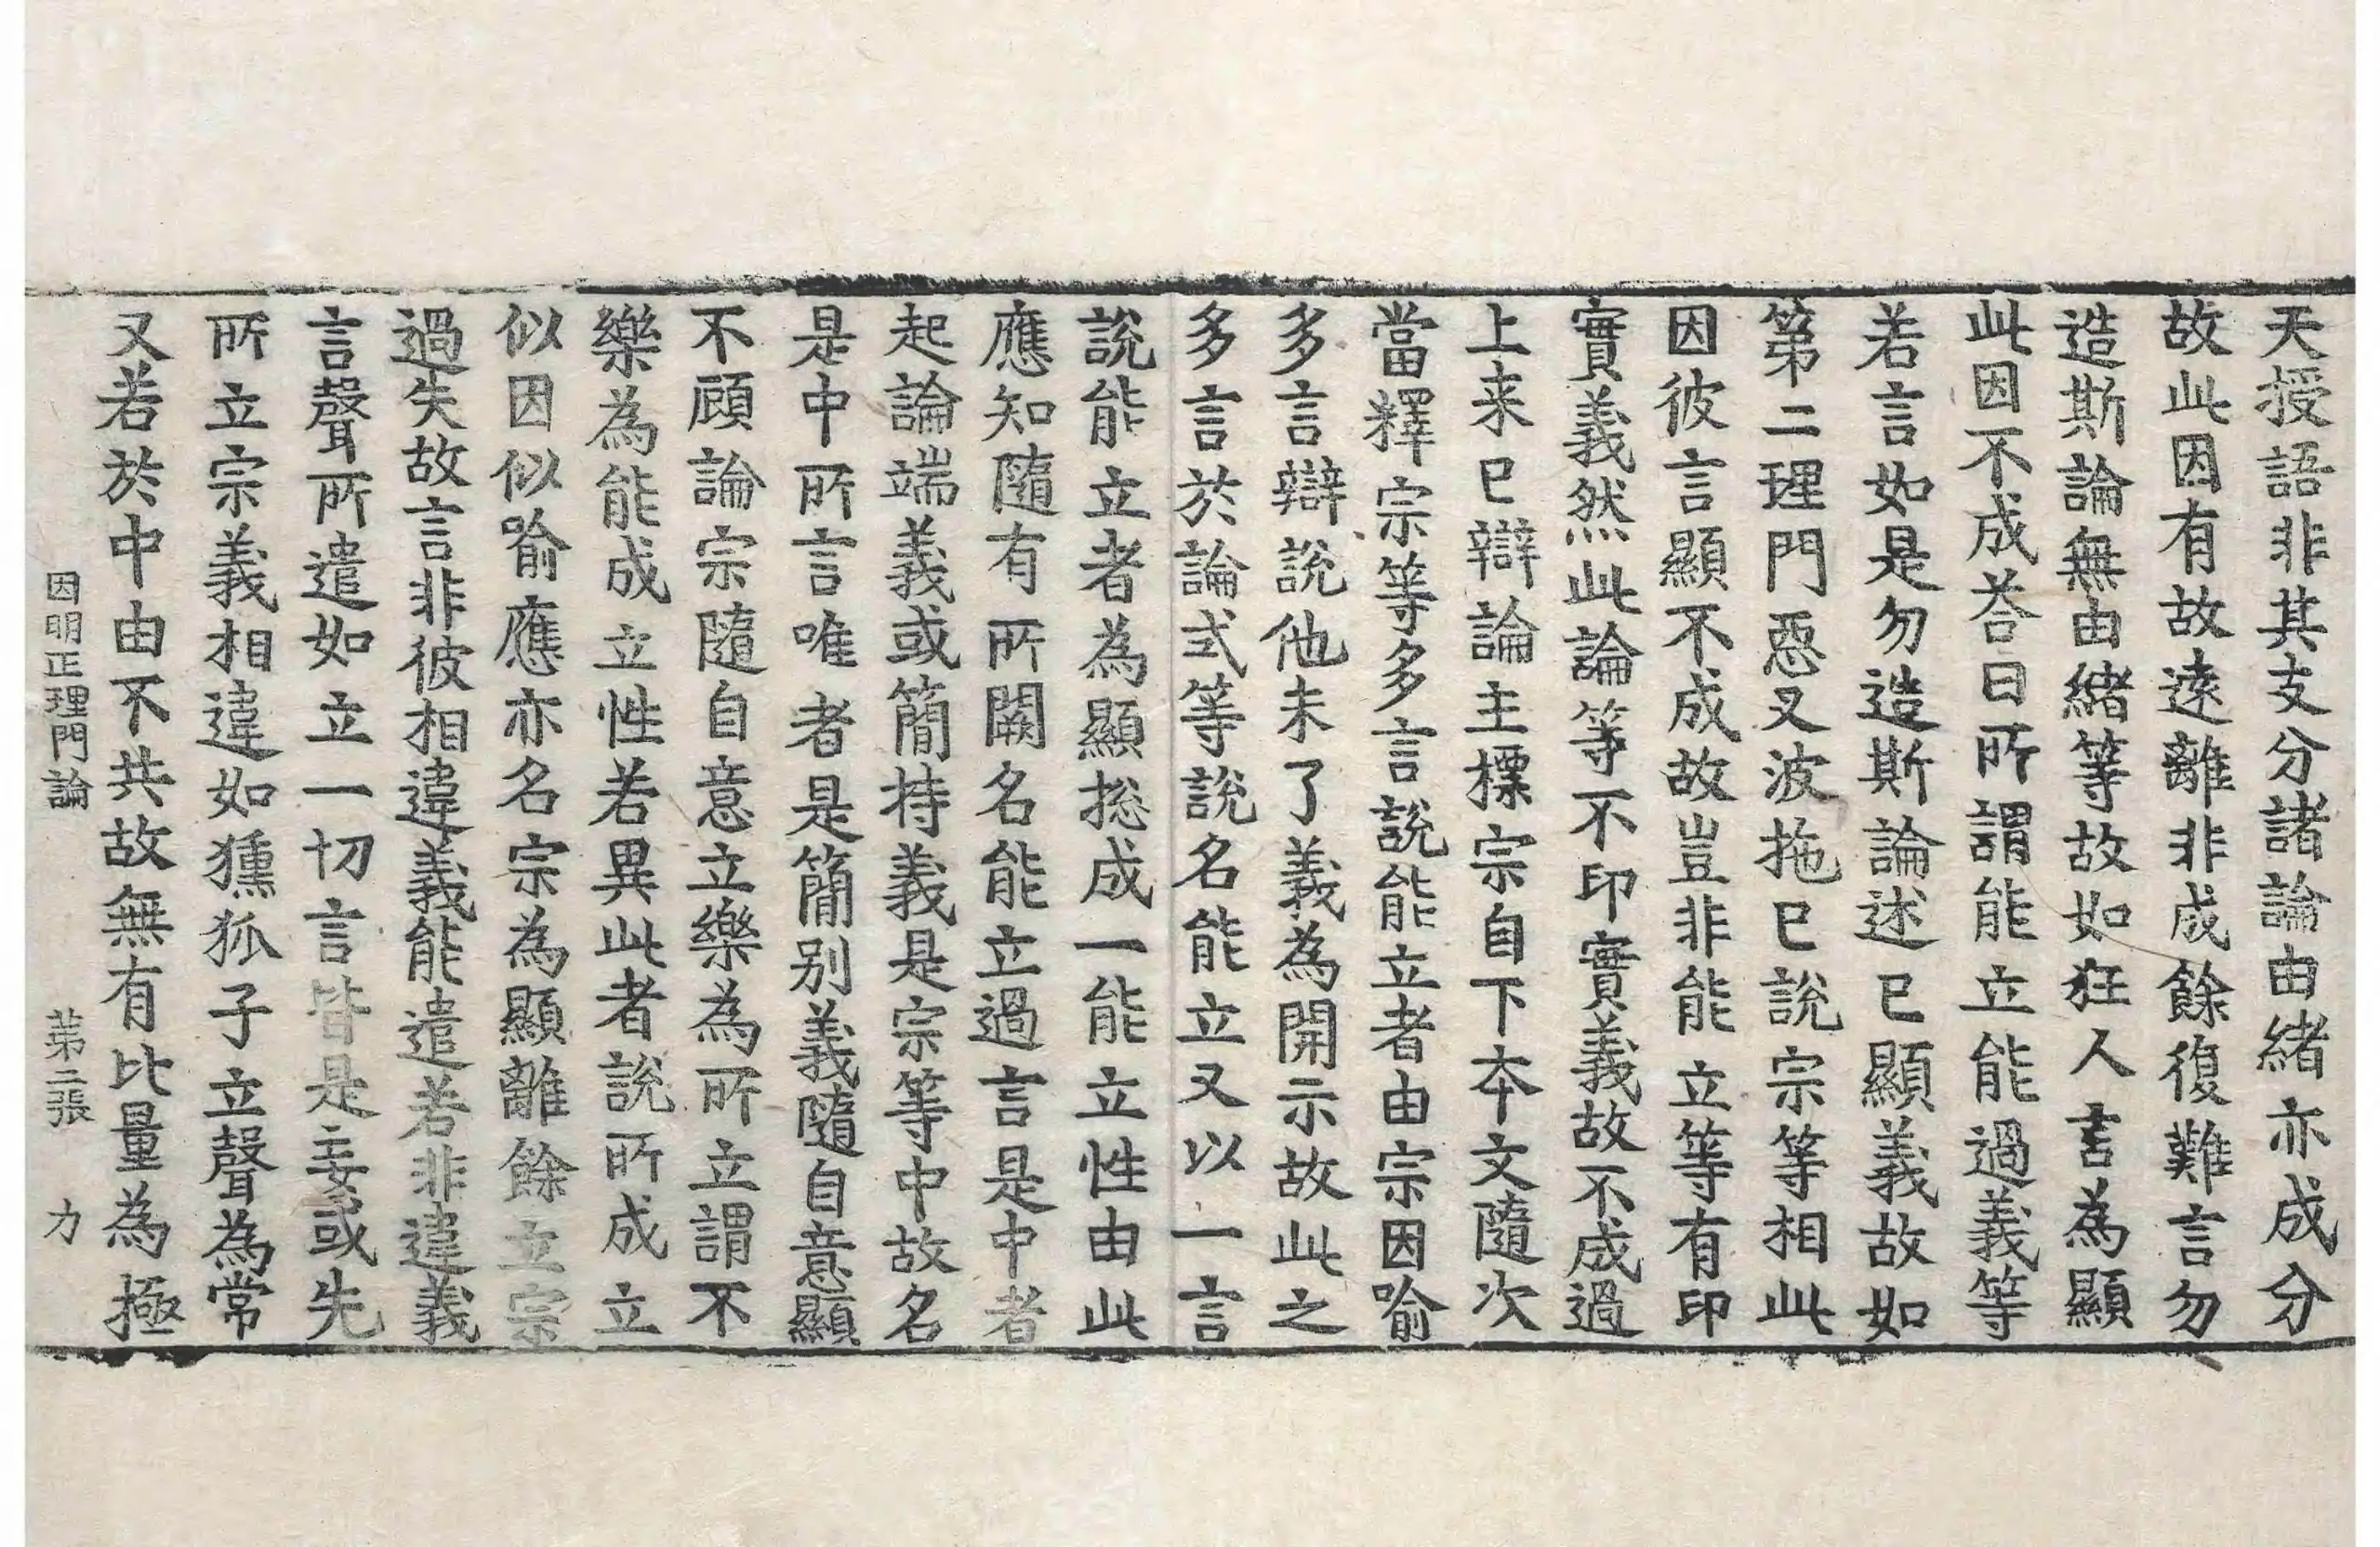 天授語非其支分諸論由緒亦成分
故此因有故遠離非成餘復難言勿
造斯論無由緒等故如狂人言為顯
此因不成荅曰所謂能立能過義等
若言如是勿造斯論述已顯義故如
第二理門惡叉波拖已說宗等相此
因彼言顯不成故豈非能立等有印
實義然此論等不印實義故不成過
上来已辯論主標宗自下夲文隨次
當釋宗等多言說能立者由宗因喻
多言辯說他未了義為開示故此之
多言於論式等說名能立又以一言
說能立者為顯捴成一能立性由此
應知隨有所闕名能立過言是中者
起論端義或簡持義是宗等中故名
是中所言唯者是簡別義隨自意顯
不顧論宗隨自意立樂為所立謂不
樂為能成立性若異此者說所成立
似因似喻應亦名宗為顯離餘立宗
過失故言非彼相違義能遣若非違義
言聲所遣如立一切言皆是妄或先
所立宗義相違如獯狐子立聲為常
又若於中由不共故無有比量為極
因明正理門論 苐二張 力